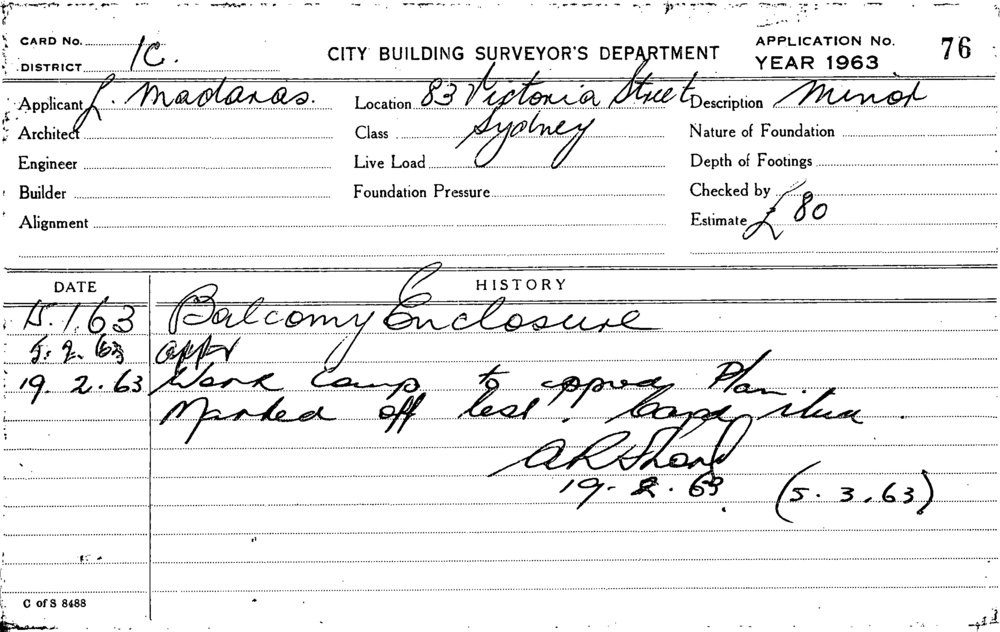 CARD No.
DISTRICT 1C.
CITY BUILDING SURVEYOR'S DEPARTMENT
APPLICATION No. 76
YEAR 1963
Applicant L. Madaras. Location 83 Victoria Street Description Minor
Architect Class Sydney Nature of Foundation
Engineer Live Load Depth of Footings
Builder Foundation Pressure Checked by
Alignment Estimate £80
DATE HISTORY
15.1.63 Balcony Enclosure
5.2.63 appr
19.2.63 Work comp to approved Plan.
Marked off list.
19.2.63 (5.3.63)
C of S 8488